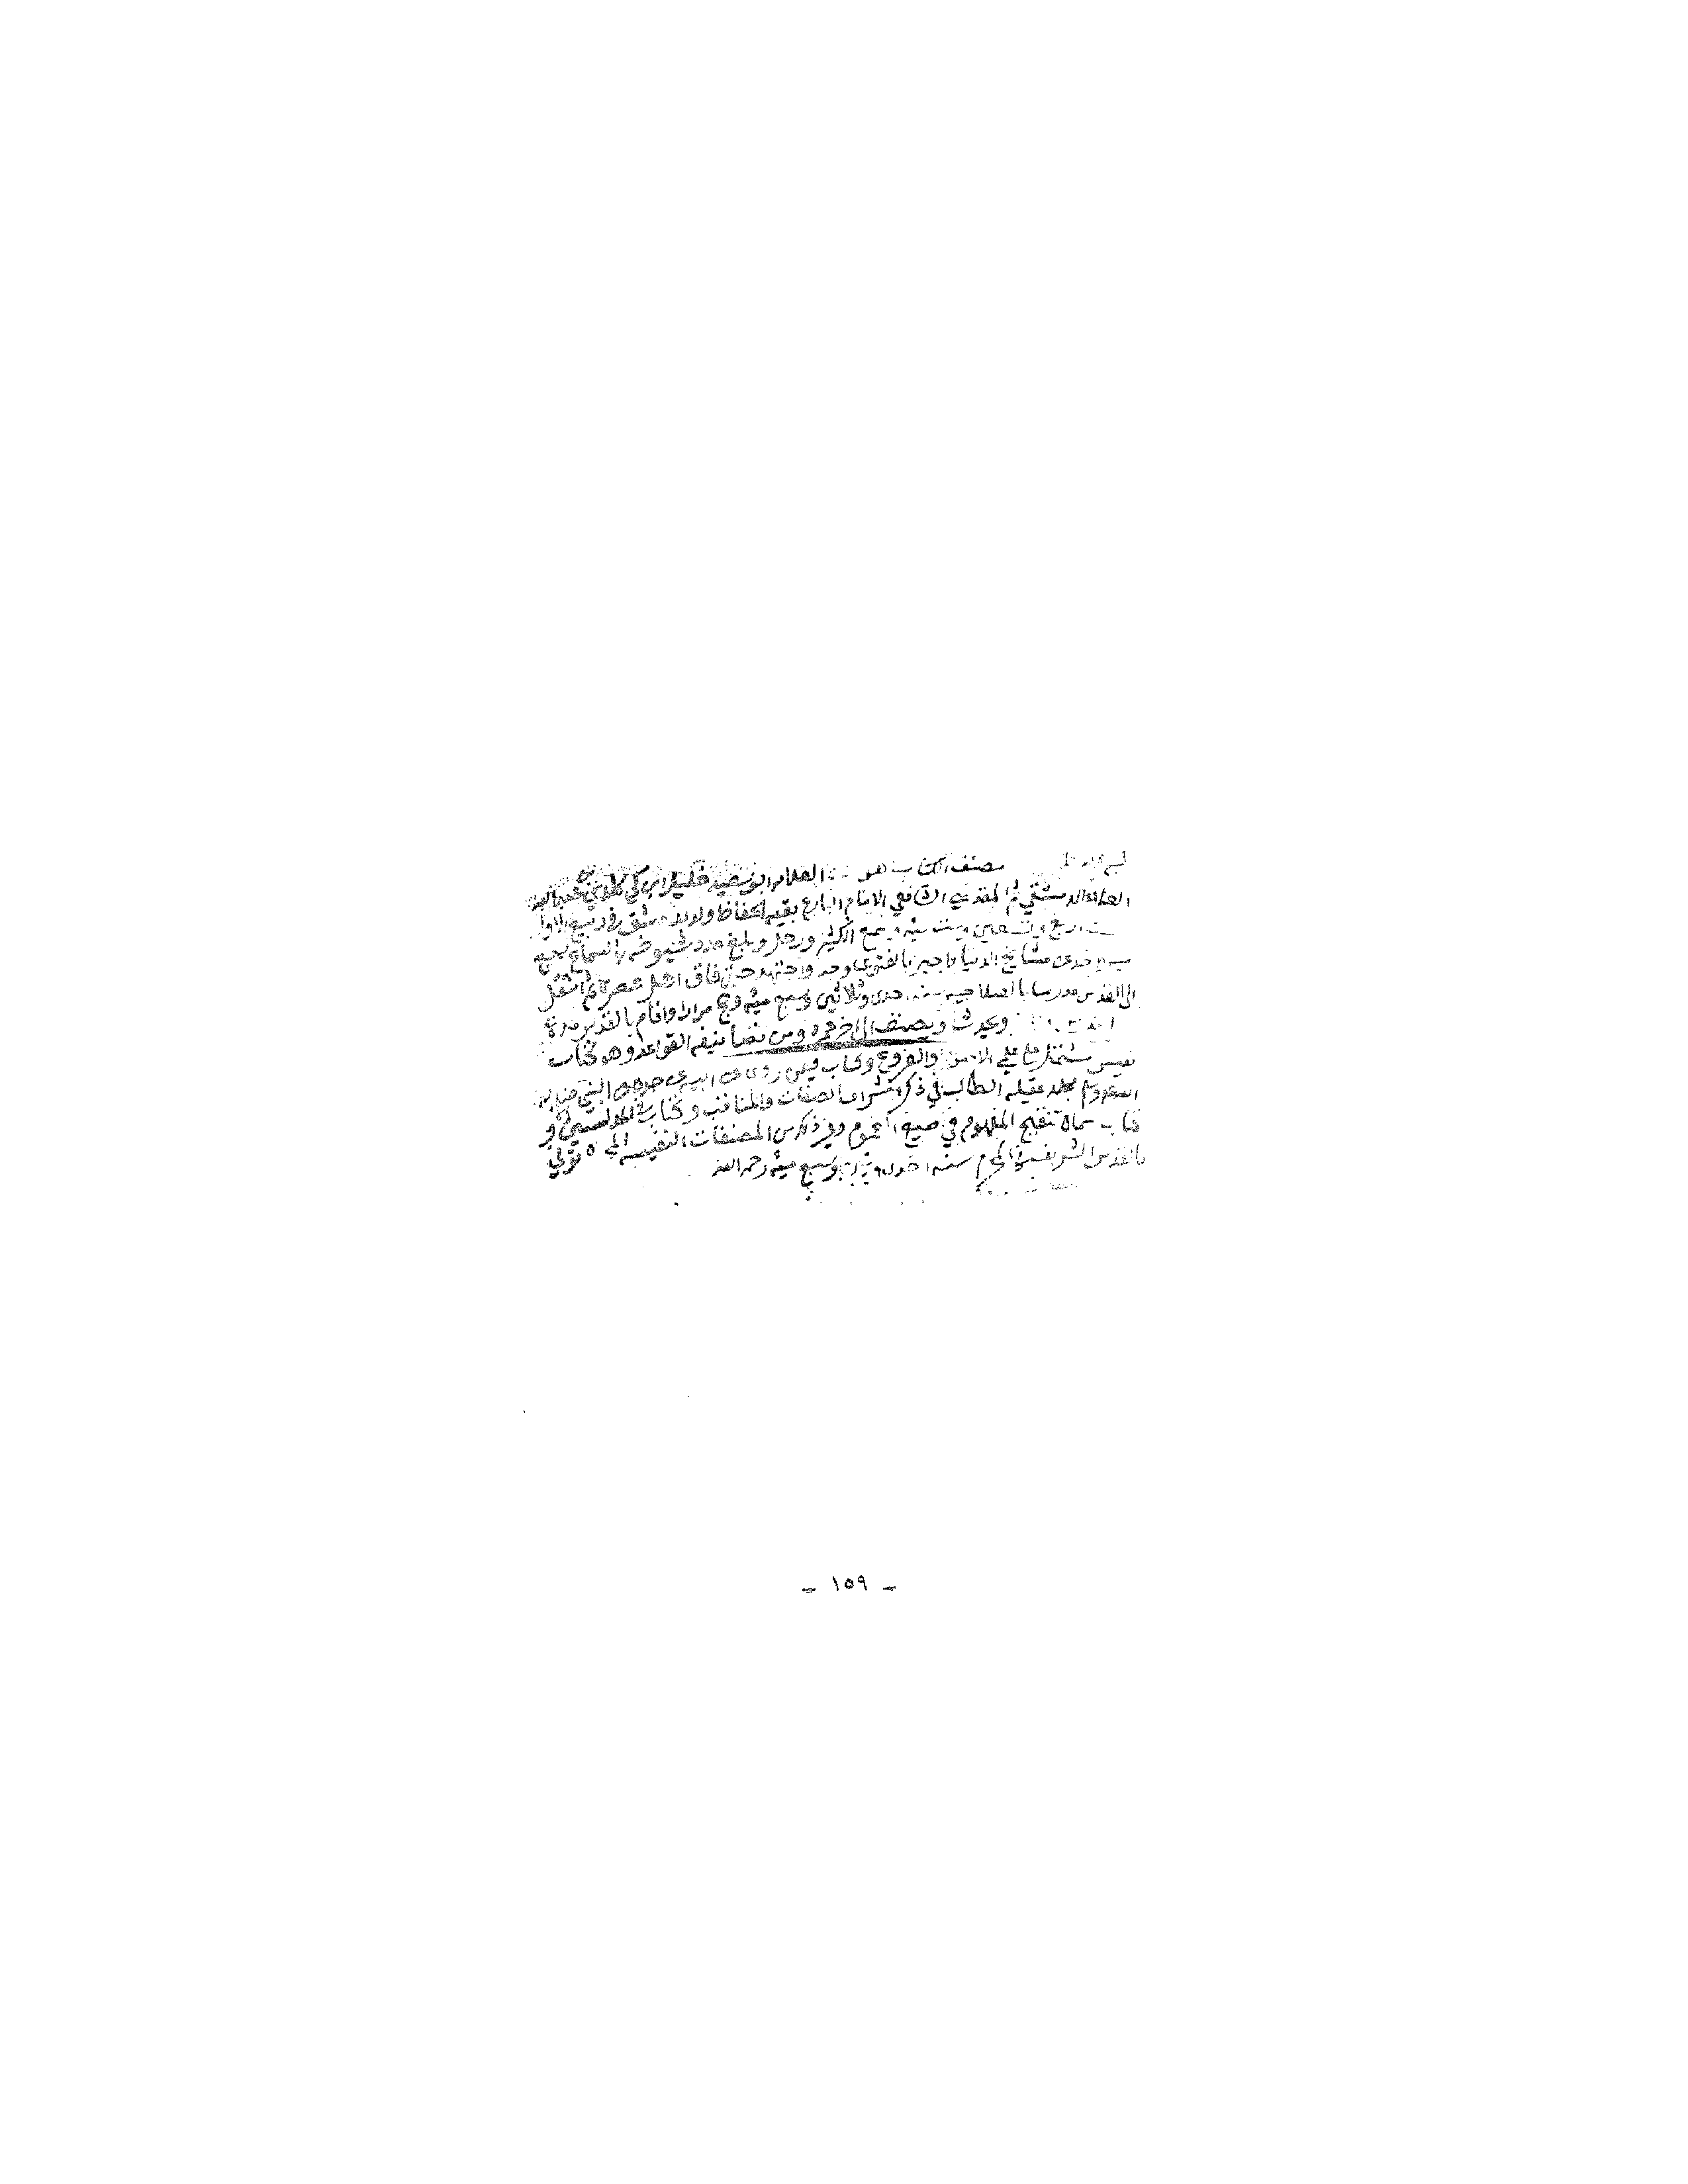 مصنف الكتاب هو العلامه ابو سعيد خليل ابن كيكلدي بن عبد الله
العلائي الدمشقي ثم المقدسي الشافعي الامام البارع بقيه الحفاظ ولد بدمشق في ربيع الاول
اربع وتسعين وست مئه وسمع الكثير ورحل وبلغ عدد شيوخه بالسماع سبع
مشايخ الدنيا واجيز بالفتوى وجد واجتهد حتى فاق اهل عصره ثم انتقل
الى القدس مدرسا بالصلاحيه سنه احدى وثلاثين وسبع مئه وحج مرارا واقام بالقدس مدة
ويحدث ويصنف الى اخر عمره ومن تصانيفه القواعد وهو كتاب
نفيس مشتمل على علمي الاصول والفروع وكتاب فيمن روى عن ابيه عن جده عن النبي
مجلد عقيله الطالب في ذكر اشرف الصفات والمناقب وكتاب في المدلسين و
كتاب سماه تنقيح المفهوم في صيغ العموم وغير ذلك من المصنفات النفيسه توفي
بالقدس الشريف في المحرم سنه احدى وستين وسبع مئه رحمه الله
- ١٥٩ -